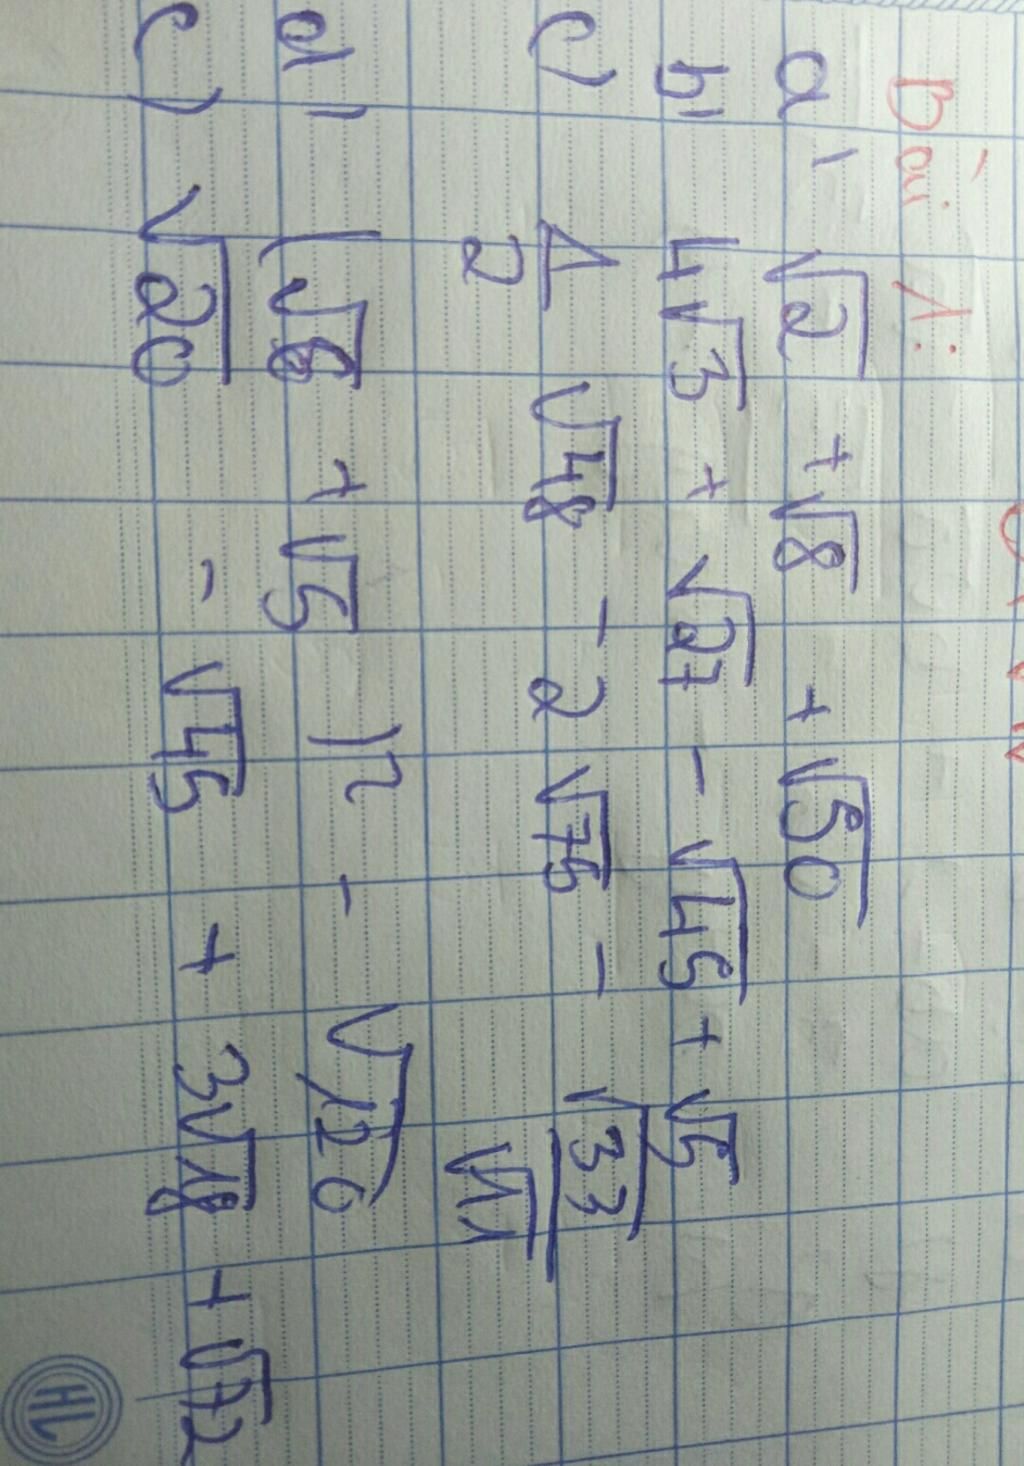 Bài 1:
a) √2 + √8 + √50
b) 4√3 + √27 - √45 + √5
c) 1/2 √48 - 2√75 - √33/√11
d) (√6 + √5)² - √120
e) √20 - √45 + 3√18 + √72
HL